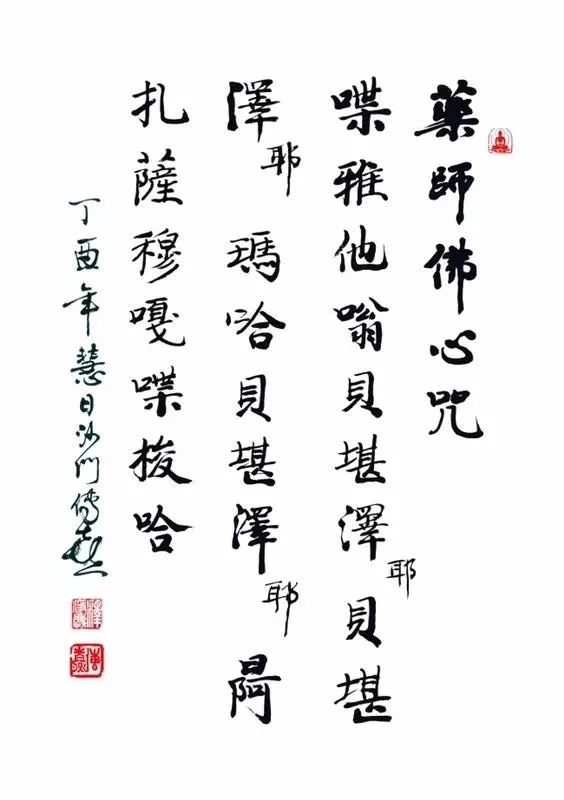 藥師佛心咒
喋雅他嗡貝堪澤耶貝堪
澤耶瑪哈貝堪澤耶曷
扎薩穆嘎喋梭哈
丁酉年慧日沙門傳喜